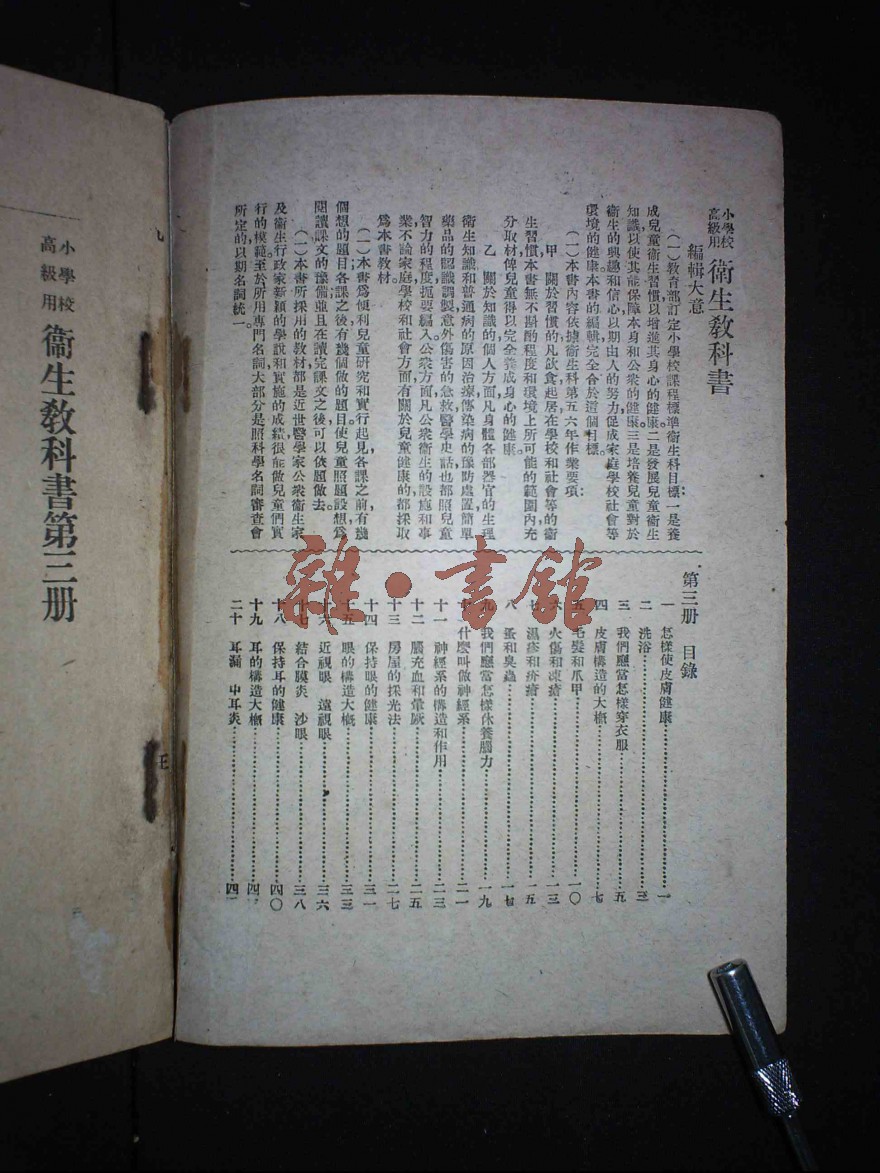 小學校
高級用
衞生敎科書
編輯大意
(一)敎育部訂定小學校課程標準衞生科目標:一是養
成兒童衞生習慣以增進其身心的健康。二是發展兒童衞生
知識以使其能保障本身和公衆的健康。三是培養兒童對於
衞生的興趣和信心以期由人的努力促成家庭學校社會等
環境的健康。本書的編輯完全合於這個目標。
(一)本書內容依據衞生科第五六年作業要項:
甲 關於習慣的凡飲食起居在學校和社會等的衞
生習慣本書無不斟酌程度和環境上所可能的範圍內充
分取材俾兒童得以完全養成身心的健康。
乙 關於知識的個人方面凡身體各部器官的生理
衞生知識和普通病的原因治療傳染病的豫防處置簡單
藥品的認識調製意外傷害的急救醫學史話也都照兒童
智力的程度扼要編入公衆方面凡公衆衞生的設施和事
業不論家庭學校和社會方面有關於兒童健康的都採取
爲本書敎材。
(一)本書爲便利兒童研究和實行起見各課之前有幾
個想的題目各課之後有幾個做的題目使兒童照題設想爲
閱讀課文的豫備並且在讀完課文之後可以依題做去。
(一)本書所採用的敎材都是近世醫學家公衆衞生家
及衞生行政家新穎的學說和實施的成績很能做兒童們實
行的模範至於所用專門名詞大部分是照科學名詞審查會
所定的以期名詞統一。
第三册 目錄
一 怎樣使皮膚健康 一
二 洗浴 三
三 我們應當怎樣穿衣服 五
四 皮膚構造的大槪 七
五 毛髮和爪甲 一〇
六 火傷和凍瘡 一三
七 濕疹和疥瘡 一五
八 蚤和臭蟲 一七
九 我們應當怎樣休養腦力 一九
十 什麼叫做神經系 二一
十一 神經系的構造和作用 二三
十二 腦充血和暈厥 二五
十三 房屋的採光法 二七
十四 保持眼的健康 三一
十五 眼的構造大槪 三三
十六 近視眼 遠視眼 三六
十七 結合膜炎 沙眼 三八
十八 保持耳的健康 四〇
十九 耳的構造大槪 四
二十 耳漏 中耳炎 四
小學校
高級用
衞生敎科書第三册
雜·書館